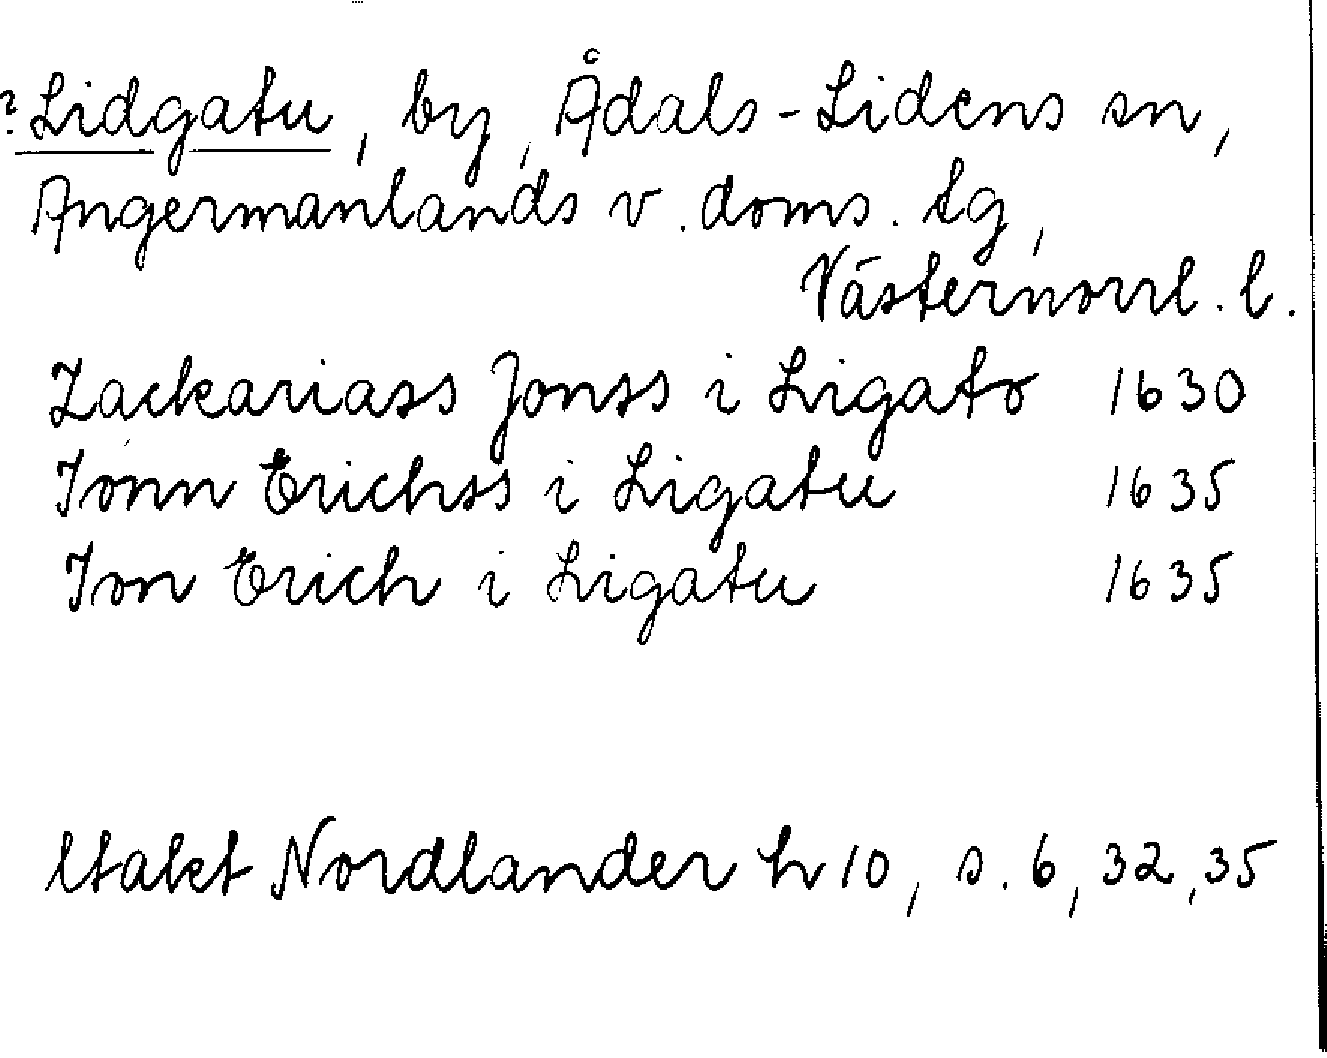 ? Lidgatu, by, Ådals-Lidens sn,
Angermanlands v. doms. tg,
Västernorrl. l.
Zackariass Jonss i Ligato 1630
Jonn Erichss i Ligatu 1635
Jon Erich i Ligatu 1635
Utakt Nordlander h 10, s. 6, 32, 35